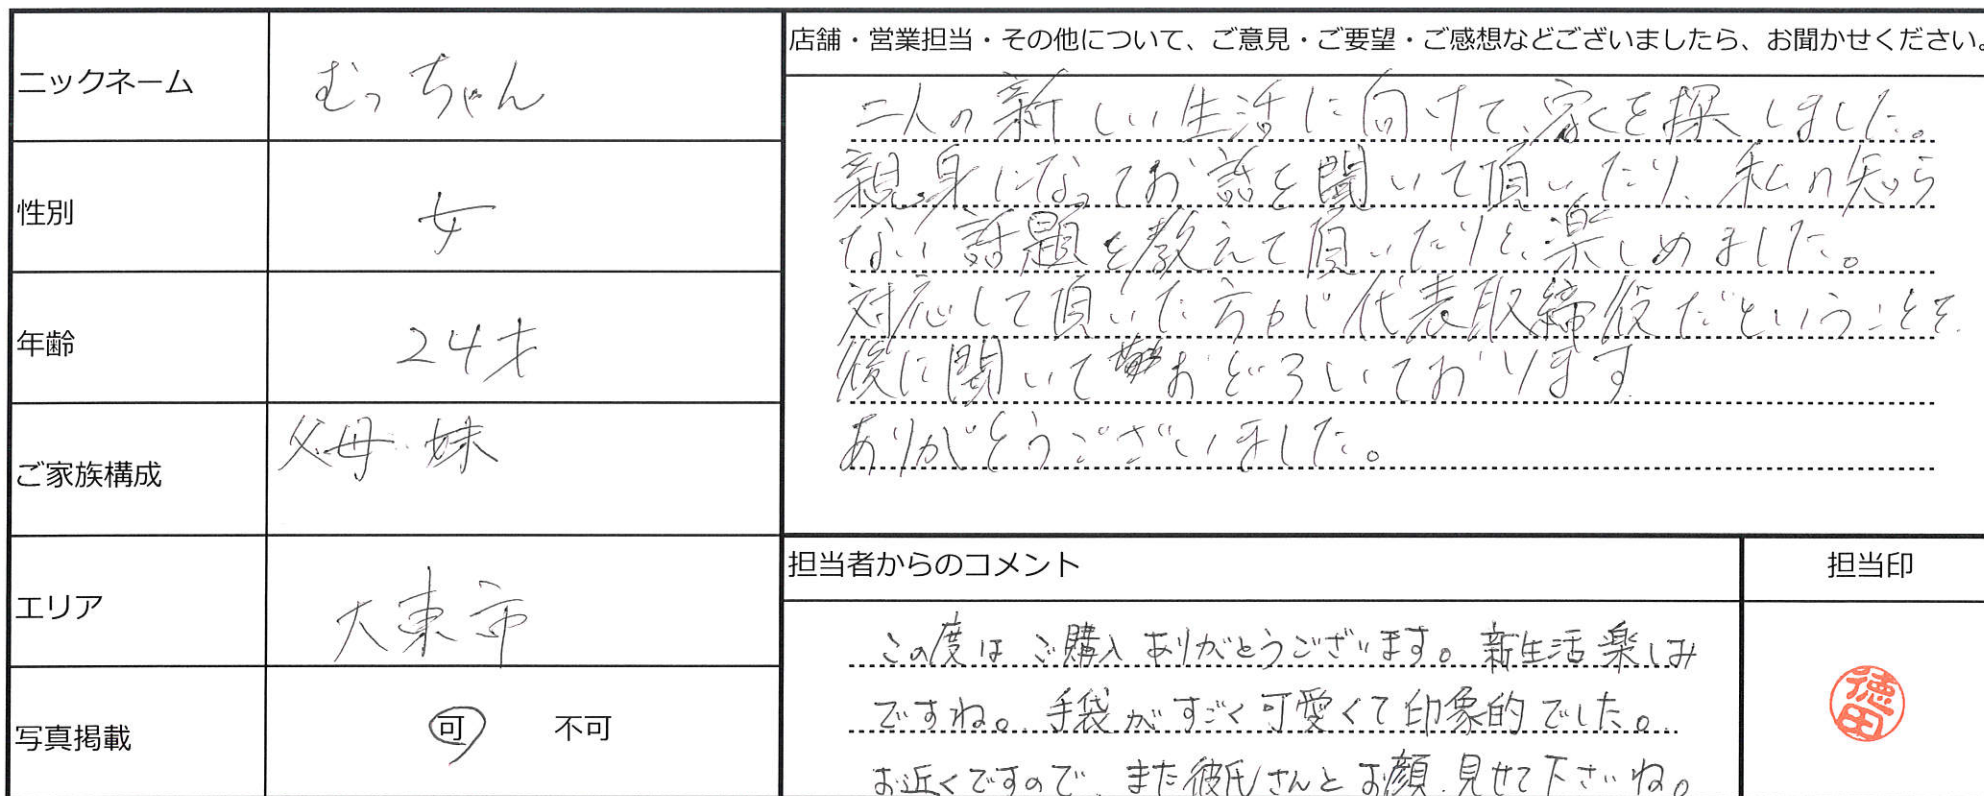 ニックネーム むっちゃん
性別 女
年齢 24才
ご家族構成 父母 妹
エリア 大東市
写真掲載 可 不可
店舗・営業担当・その他について、ご意見・ご要望・ご感想などございましたら、お聞かせください。
二人の新しい生活に向けて、家を探しました。
親身になってお話を聞いて頂いたり、私の知ら
ない話題を教えて頂いたりと、楽しめました。
対応して頂いた方が代表取締役だということを
後に聞いておどろいております
ありがとうございました。
担当者からのコメント
この度はご購入ありがとうございます。新生活楽しみ
ですね。手袋がすごく可愛くて印象的でした。
お近くですので、また彼氏さんとお顔見せて下さいね。
担当印
徳田